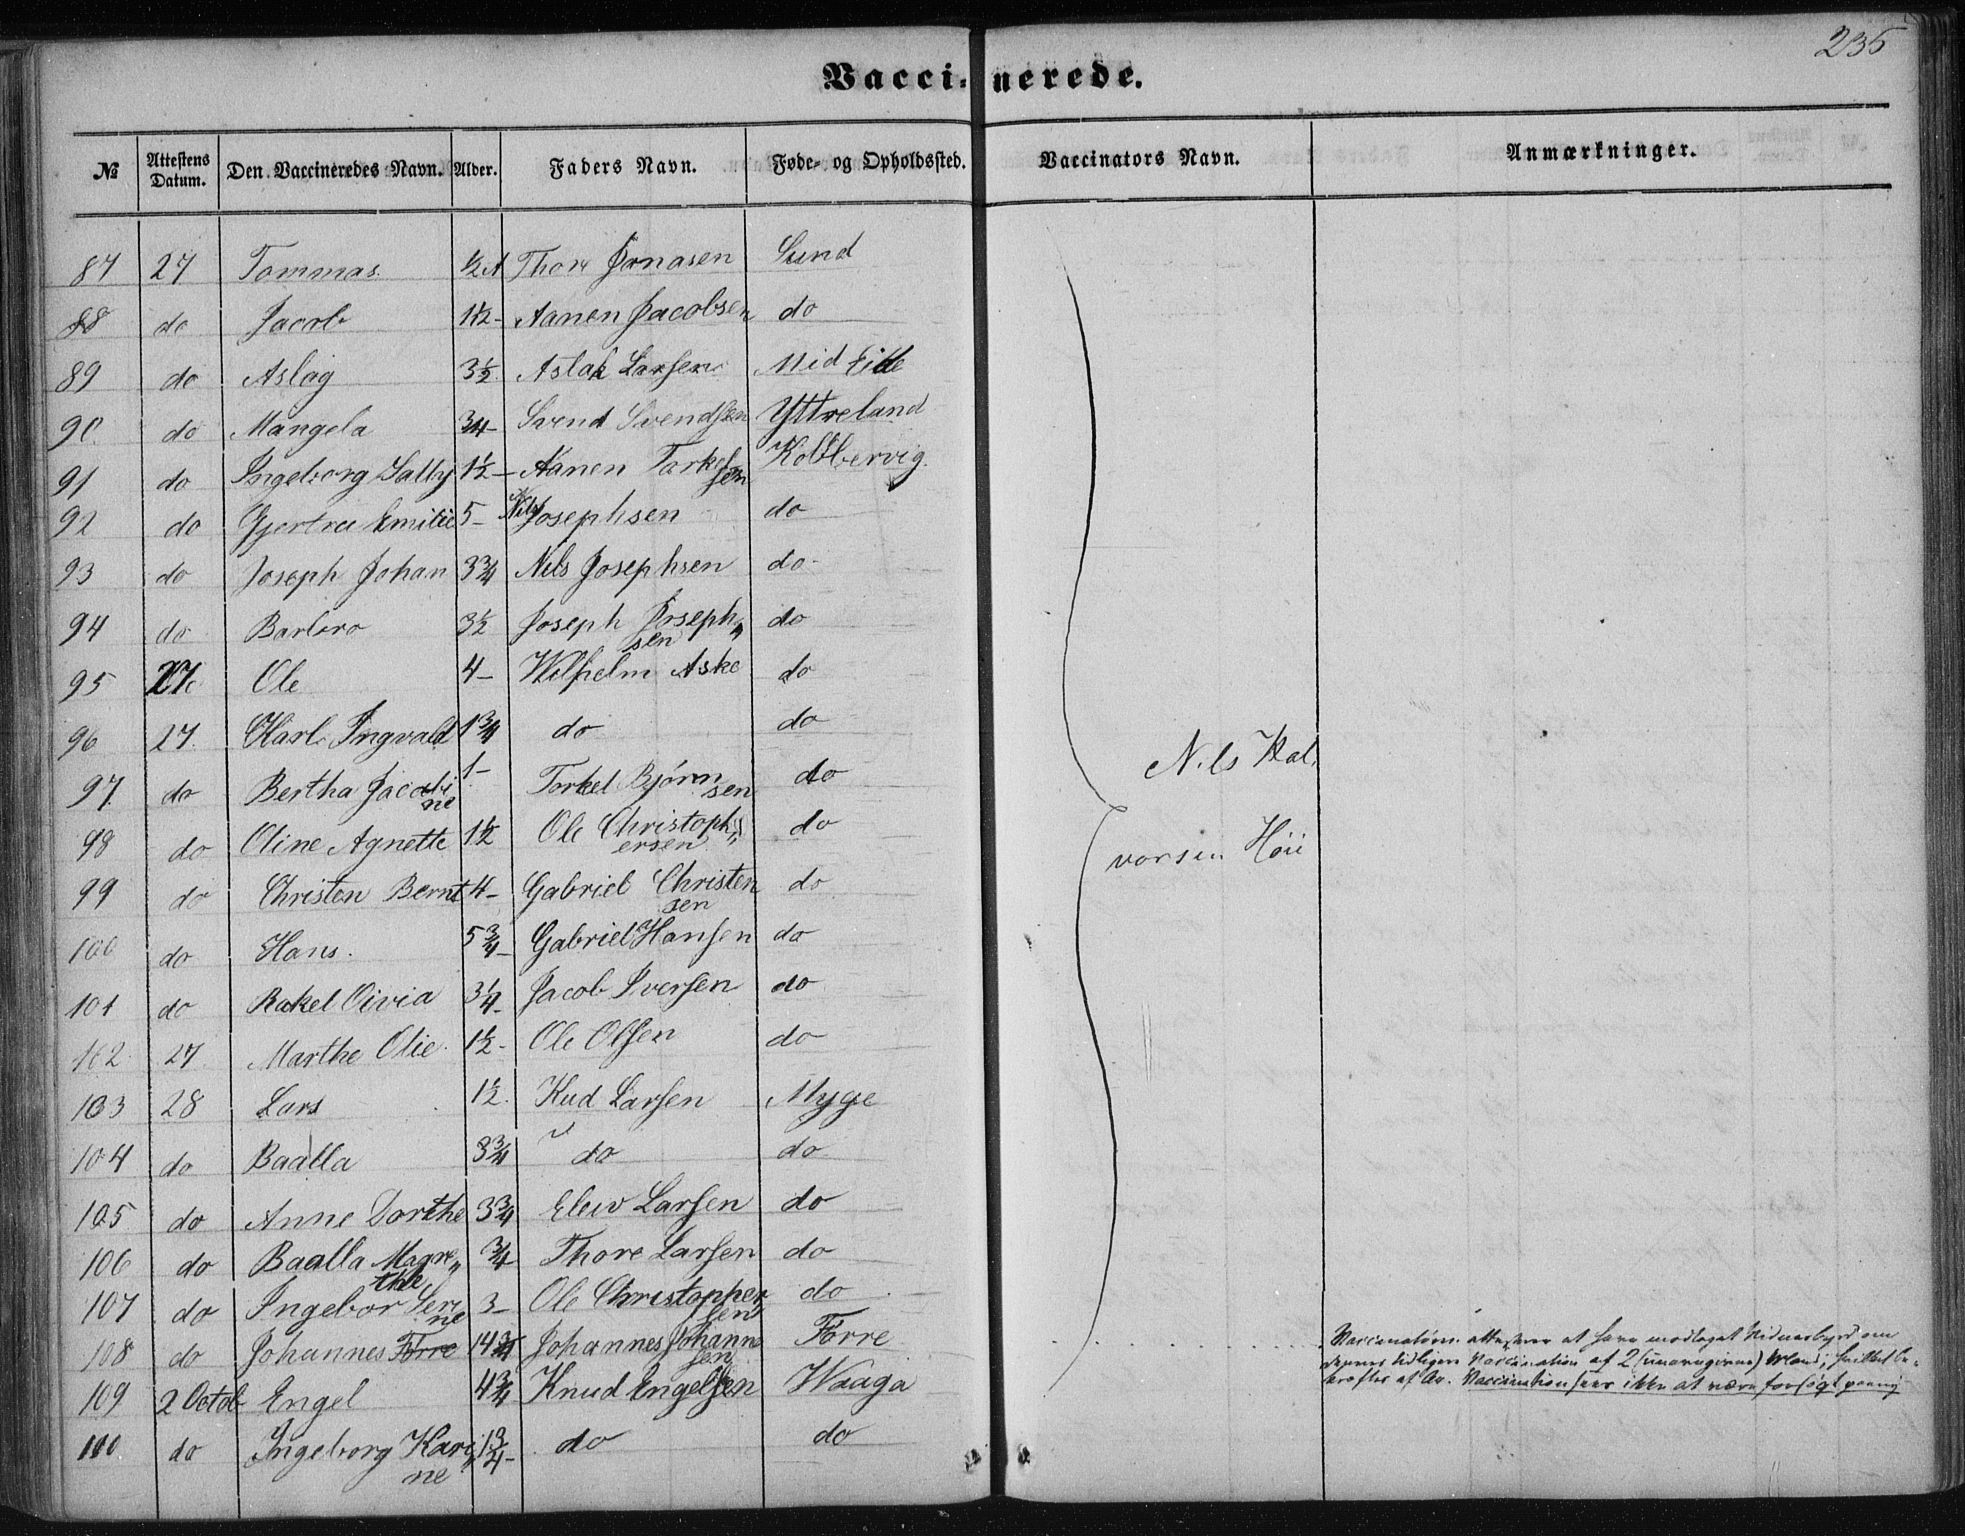 235
Vaccinerede.
No Attestens Datum. Den Vaccineredes Navn. Alder. Faders Navn. Føde- og Opholdssted. Vaccinators Navn. Anmærkninger.
87 27 Tommas ½ A Thore Jonasen Sund
88 do Jacob 1½ - Aanen Jacobsen do
89 do Aslag 3½ Aslak Larsen Mid Eide
90 do Mangela 3/4 - Svend Svendsen Yttreland
91 do Ingeborg Sally 1½ - Aanen Tarkelsen Kolbbervig
92 do Gjertru Emilie 5 - Nils Josephsen do
93 do Joseph Johan 3 3/4 Nils Josephsen do
94 do Barbro 3½ Joseph Joseph„
sen do
95 27 Ole 4 - Wilhelm Aske do
96 27. Karl Ingvald 1 3/4 do do
Nils Hal,
97. do Bertha Jacobi
ne 1 - Torkel Bjørn
sen do
98 do Oline Agnette 1½ Ole Christoph„
ersen do
vorsen Høie
99 do Christen Bernt 4 - Gabriel Christen
sen do
100 do Hans. 5 3/4 - Gabriel Hansen do
101 do Rakel Oivia 3 1/4 - Jacob Iversen do
102 27 Marthe Olie 1½ - Ole Olsen do
103 28 Lars 1½ Kud Larsen Myge
104 do Baalla 3 3/4 do do
105 do Anne Dorthe 3 3/4 Elew Larsen do
106 do Baalla Magre„
the 3/4 Thore Larsen do
107 do Ingebor Seri
ne 3 - Ole Christopher
sen do
108 do Johannes Forre 14 3/4 Johannes Johanne
sen Forre
Vaccinatøren attesterer at have modtaget Vidnesbyrd om
dennes tidligere Vaccination af 2 (unavngivne) Mænd, hvilket be„
kræftes af Ar. Vaccination sees ikke at være forsøgt paany
109 2 Octob Engel 4 3/4 Knud Engelsen Waaga
110 do Ingeborg Kari„
ne 1 3/4 - do do